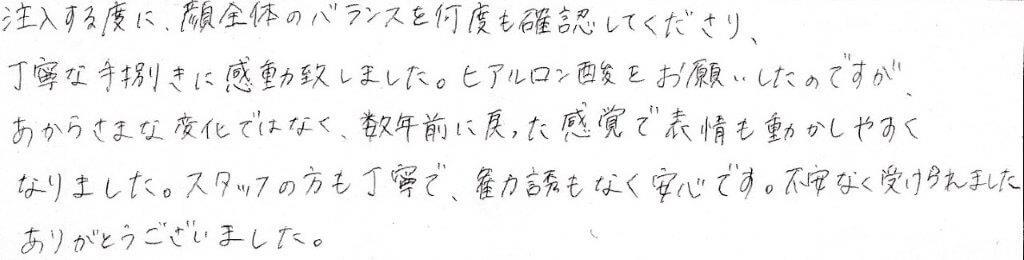 注入する度に、顔全体のバランスを何度も確認してくださり、
丁寧な手捌きに感動致しました。ヒアルロン酸をお願いしたのですが、
あからさまな変化ではなく、数年前に戻った感覚で表情も動かしやすく
なりました。スタッフの方も丁寧で、勧誘もなく安心です。不安なく受けられました
ありがとうございました。